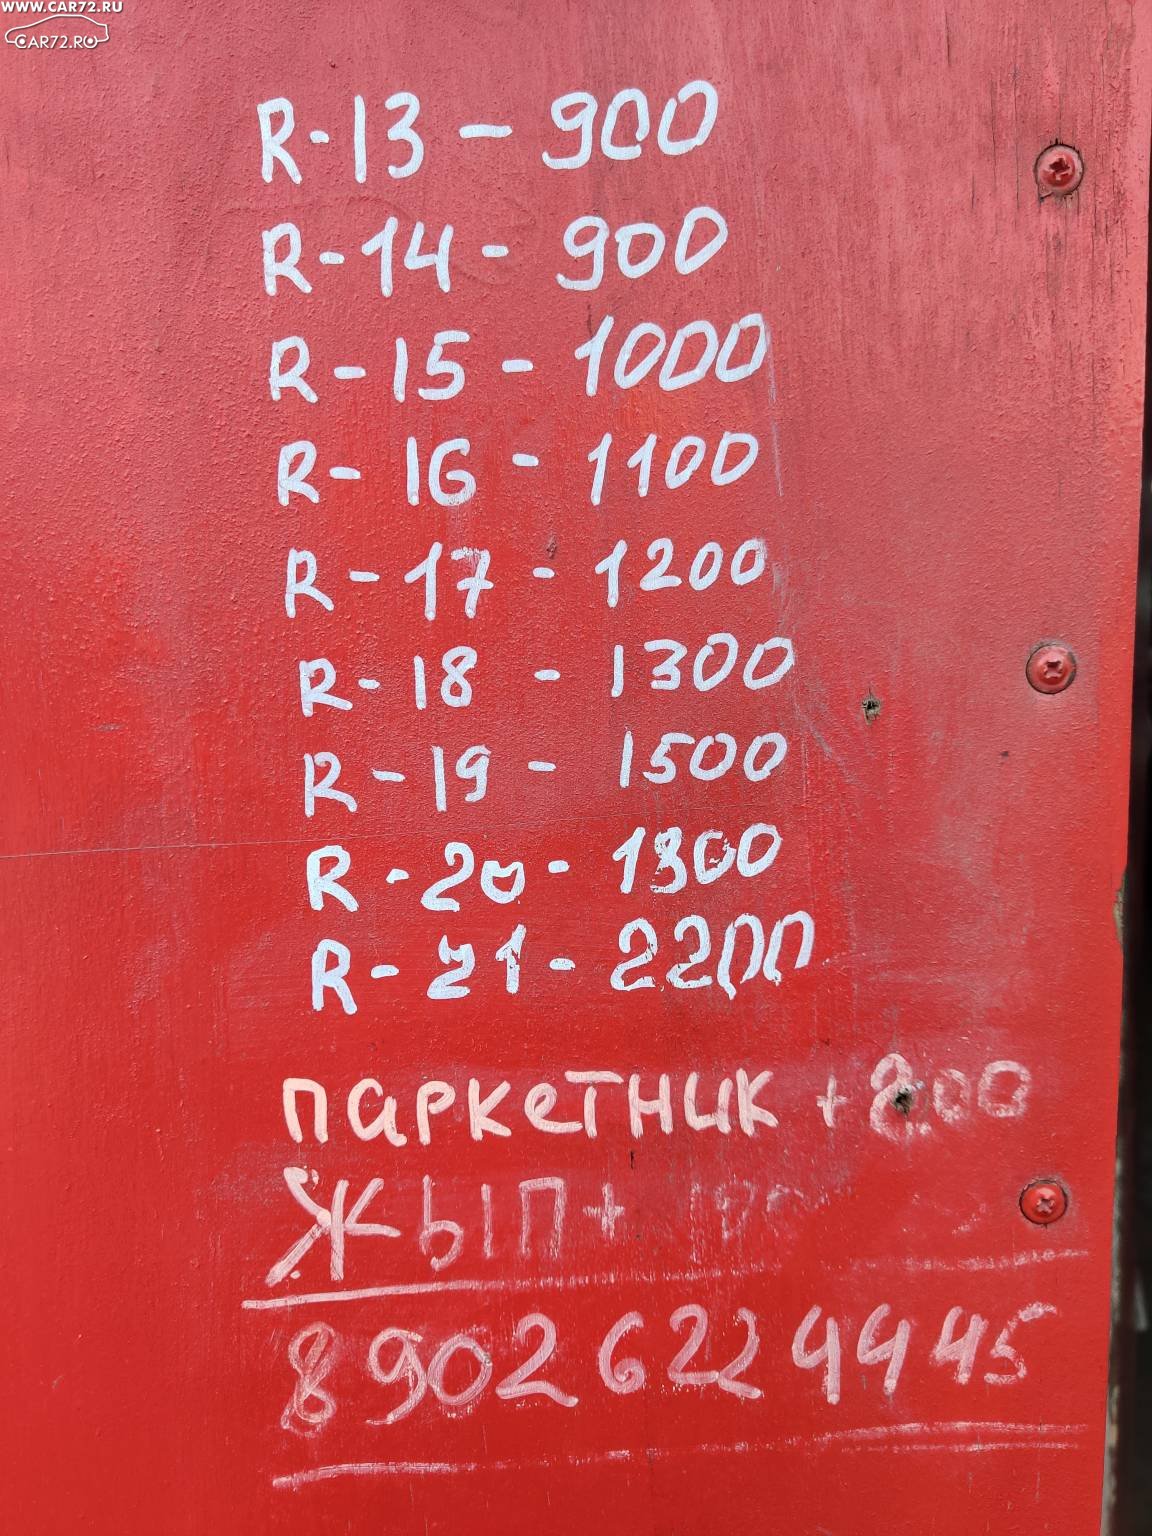 WWW.CAR72.RU
CAR72.RU
R-13-900
R-14-900
R-15-1000
R-16-1100
R-17-1200
R-18-1300
R-19-1500
R-20-1800
R-21-2200
паркетник +200
Жып+
8902 622 4445